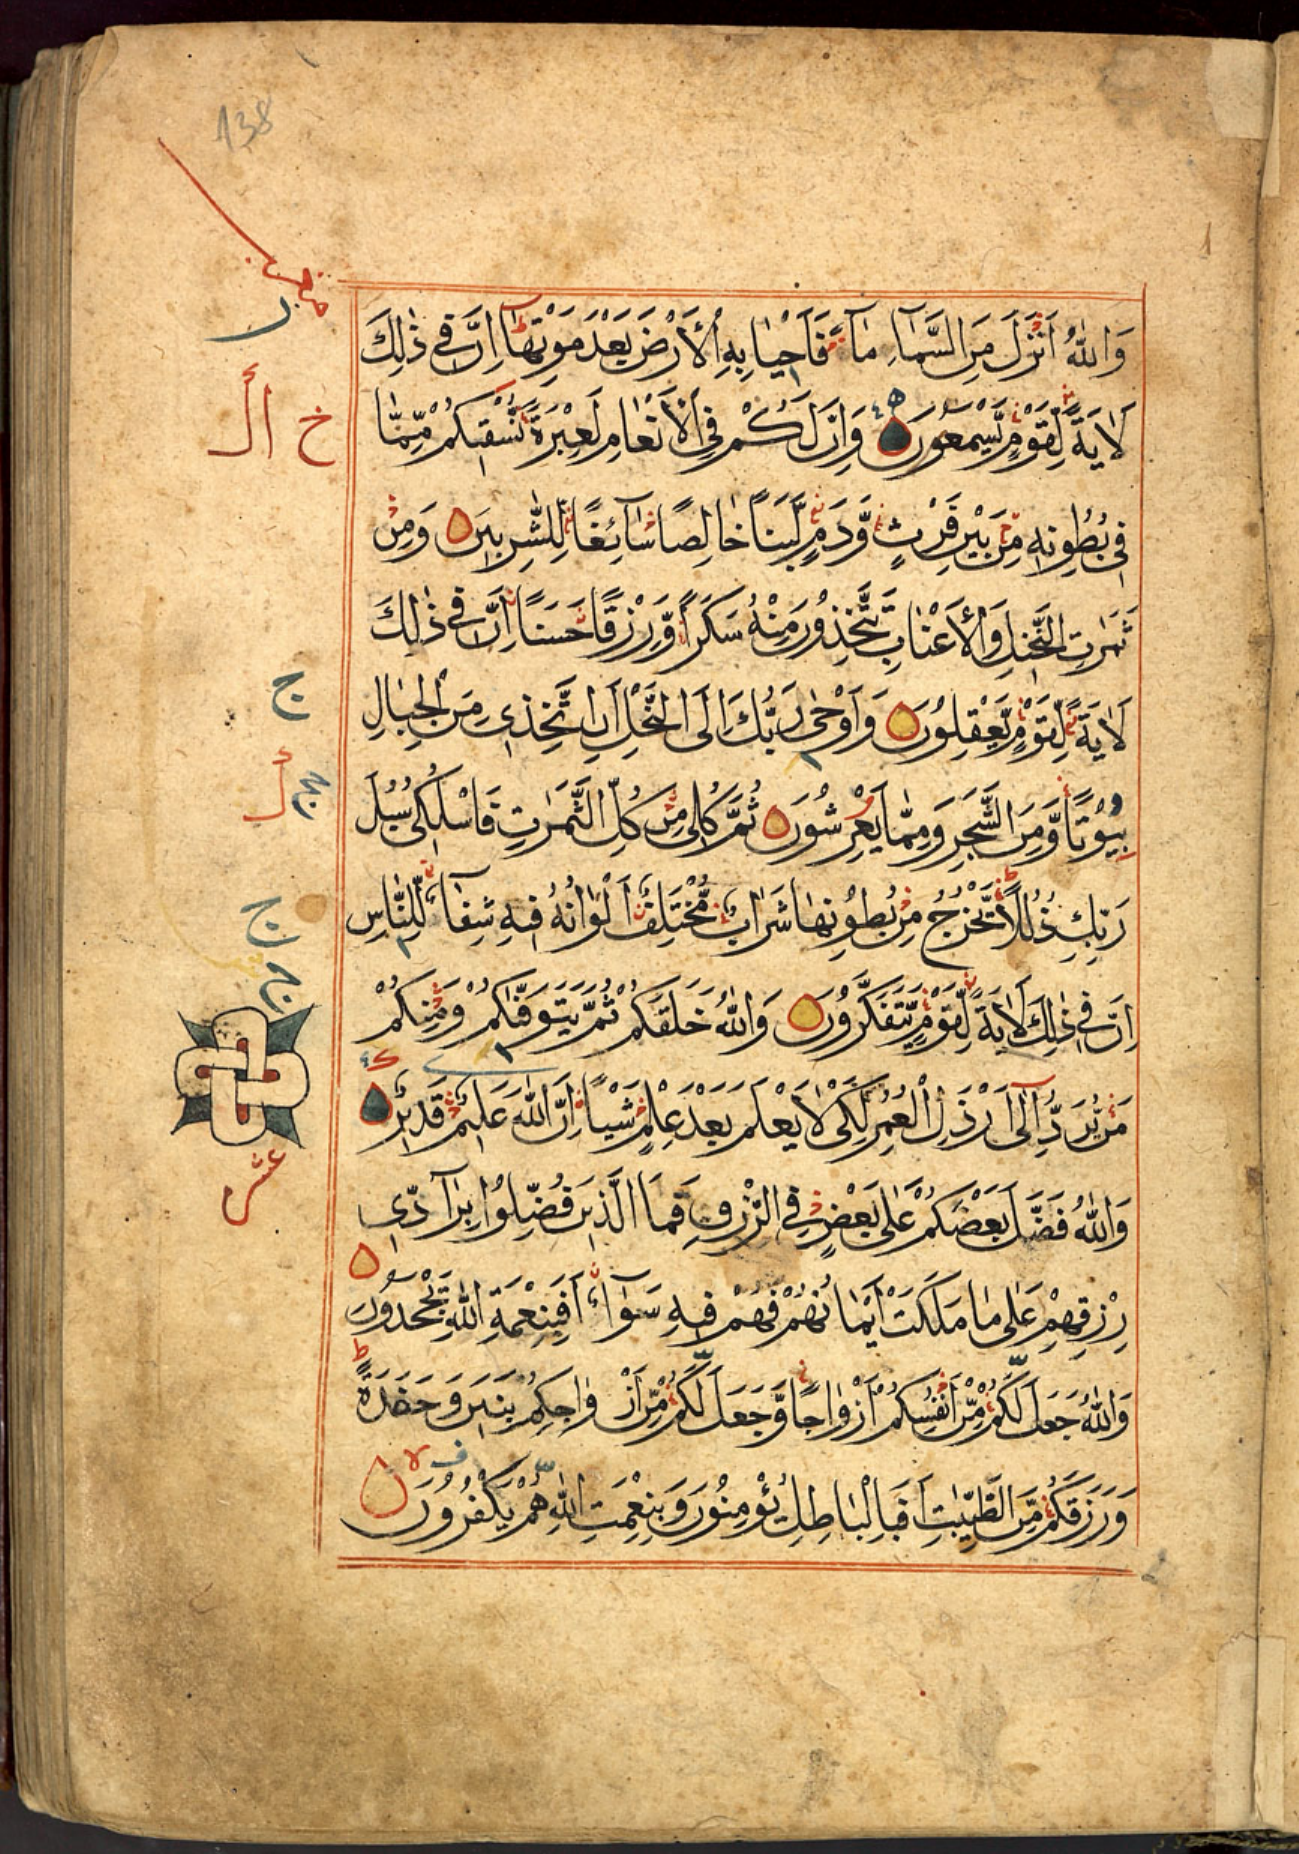 138
وَاللّٰهُ اَنْزَلَ مِنَ السَّمَآءِ مَآءً فَاَحْيَا بِهِ الْاَرْضَ بَعْدَ مَوْتِهَا اِنَّ فِي ذٰلِكَ
لَاٰيَةً لِّقَوْمٍ يَّسْمَعُونَ وَاِنَّ لَكُمْ فِي الْاَنْعَامِ لَعِبْرَةً نُّسْقِيكُمْ مِّمَّا
خ ال
فِي بُطُونِهِ مِنْ بَيْنِ فَرْثٍ وَّدَمٍ لَّبَنًا خَالِصًا سَآئِغًا لِّلشّٰرِبِينَ وَمِنْ
ثَمَرٰتِ النَّخِيلِ وَالْاَعْنَابِ تَتَّخِذُونَ مِنْهُ سَكَرًا وَّرِزْقًا حَسَنًا اِنَّ فِي ذٰلِكَ
لَاٰيَةً لِّقَوْمٍ يَّعْقِلُونَ وَاَوْحٰى رَبُّكَ اِلَى النَّحْلِ اَنِ اتَّخِذِي مِنَ الْجِبَالِ
ج
بُيُوْتًا وَّمِنَ الشَّجَرِ وَمِمَّا يَعْرِشُونَ ثُمَّ كُلِي مِنْ كُلِّ الثَّمَرٰتِ فَاسْلُكِي سُبُلَ
رَبِّكِ ذُلُلًا يَّخْرُجُ مِنْ بُطُوْنِهَا شَرَابٌ مُّخْتَلِفٌ اَلْوَانُهُ فِيهِ شِفَآءٌ لِّلنَّاسِ
ج
اِنَّ فِي ذٰلِكَ لَاٰيَةً لِّقَوْمٍ يَّتَفَكَّرُونَ وَاللّٰهُ خَلَقَكُمْ ثُمَّ يَتَوَفّٰكُمْ وَمِنْكُمْ
مَنْ يُّرَدُّ اِلٰٓى اَرْذَلِ الْعُمُرِ لِكَيْ لَا يَعْلَمَ بَعْدَ عِلْمٍ شَيْـًٔا اِنَّ اللّٰهَ عَلِيمٌ قَدِيرٌ
عشر
وَاللّٰهُ فَضَّلَ بَعْضَكُمْ عَلٰى بَعْضٍ فِي الرِّزْقِ فَمَا الَّذِينَ فُضِّلُوا بِرَآدِّي
رِزْقِهِمْ عَلٰى مَا مَلَكَتْ اَيْمَانُهُمْ فَهُمْ فِيهِ سَوَآءٌ اَفَبِنِعْمَةِ اللّٰهِ يَجْحَدُونَ
وَاللّٰهُ جَعَلَ لَكُمْ مِّنْ اَنْفُسِكُمْ اَزْوَاجًا وَّجَعَلَ لَكُمْ مِّنْ اَزْوَاجِكُمْ بَنِينَ وَحَفَدَةً
وَرَزَقَكُمْ مِّنَ الطَّيِّبٰتِ اَفَبِالْبَاطِلِ يُؤْمِنُونَ وَبِنِعْمَتِ اللّٰهِ هُمْ يَكْفُرُونَ